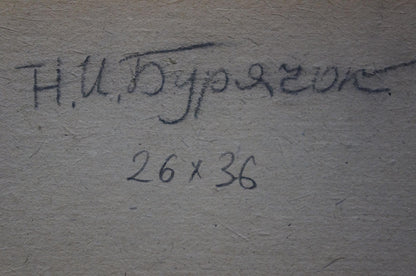 Н.И.Бурячок
26 x 36